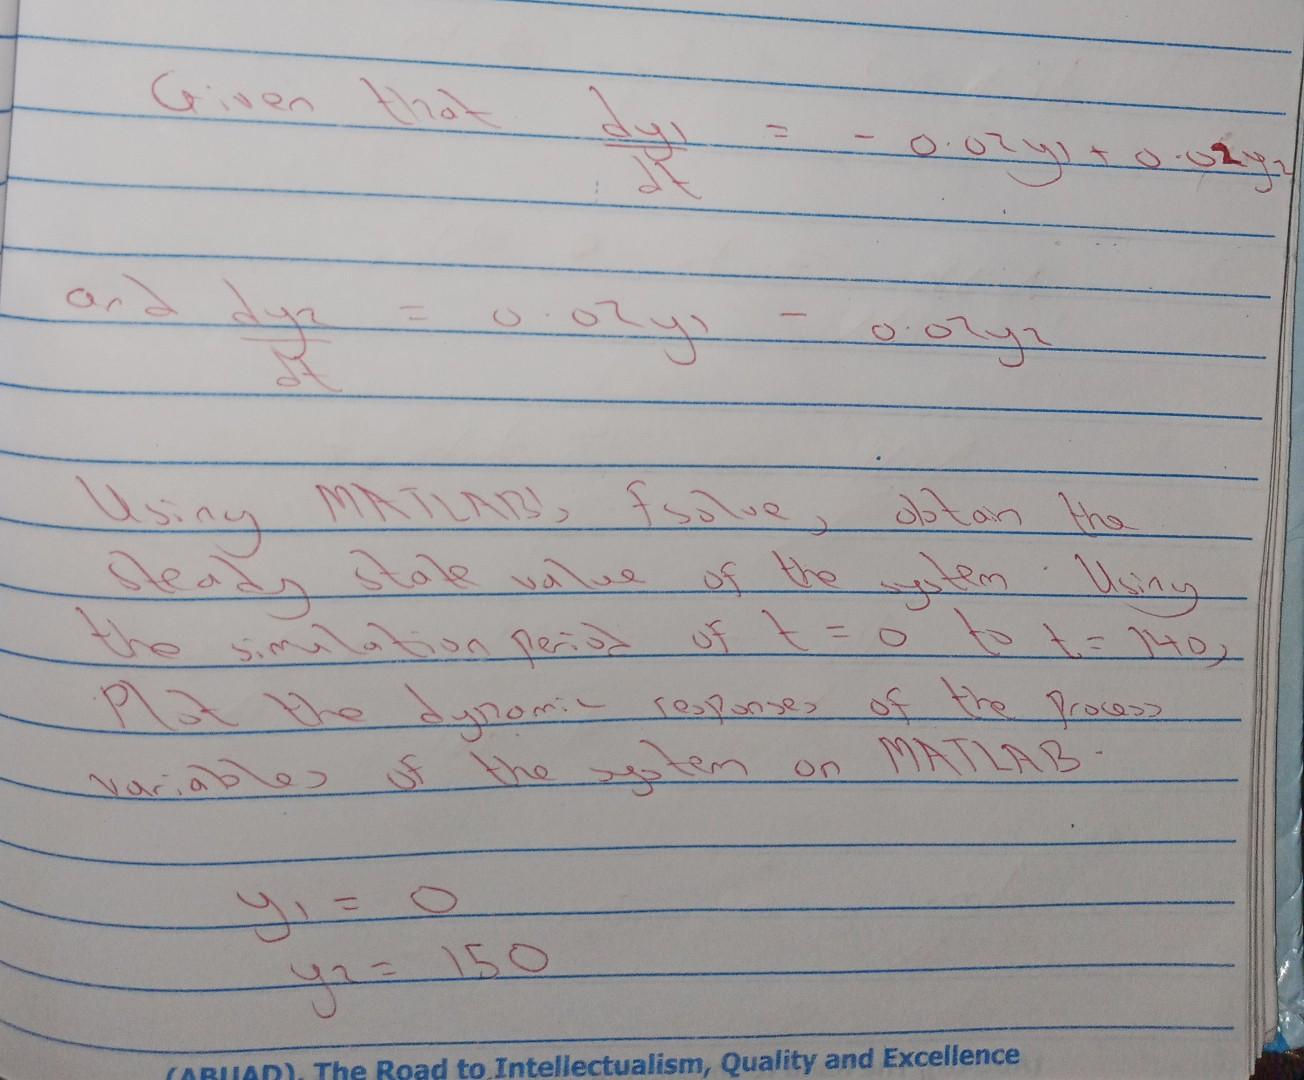 Given that dy1/dt = - 0.02y1 + 0.02y2
and dy2/dt = 0.02y1 - 0.02y2
Using MATLAB, fsolve, obtain the
steady state value of the system. Using
the simulation period of t = 0 to t = 140,
Plot the dynamic responses of the process
variables of the system on MATLAB.
y1 = 0
y2 = 150
(ABUAD), The Road to Intellectualism, Quality and Excellence